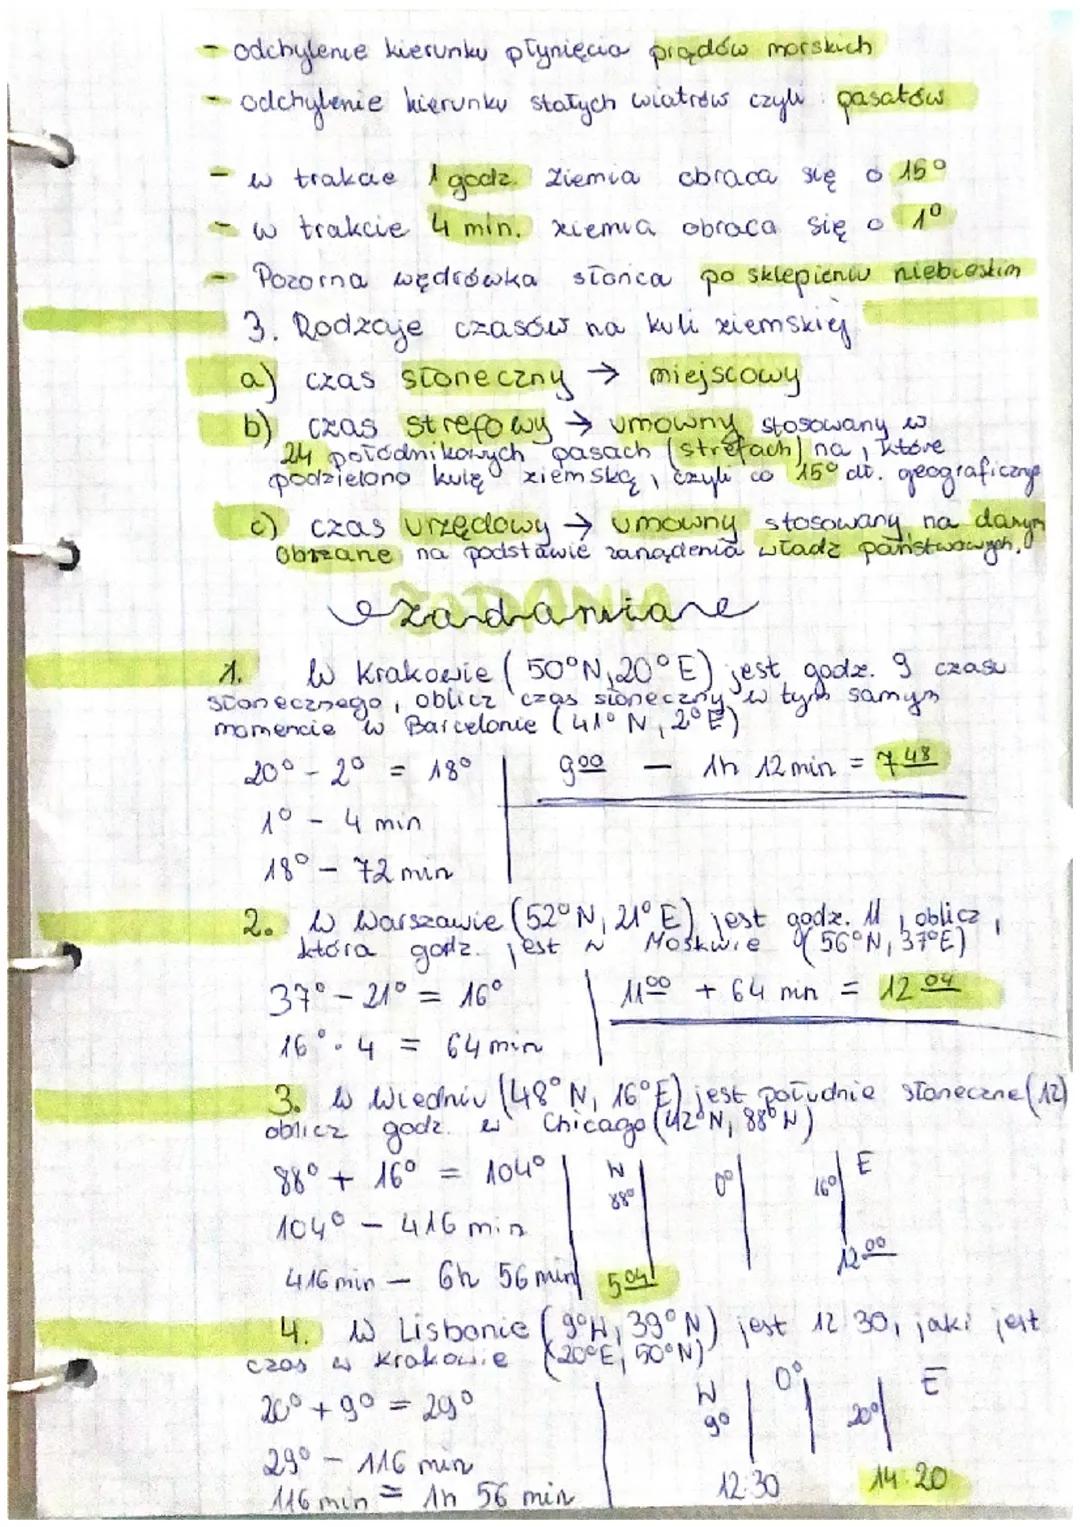 - odchylenie kierunku płynięcia prądów morskich
- odchylenie kierunku stałych wiatrów czyli pasatów
- w trakcie 1 godz. Ziemia obraca się o 15°
- w trakcie 4 min. ziemia obraca się o 1°
- Pozorna wędrówka słońca po sklepieniu niebieskim
3. Rodzaje czasów na kuli ziemskiej
a) czas słoneczny → miejscowy
b) czas strefowy → umowny stosowany w
24 południkowych pasach (strefach) na, które
podzielono kulę ziemską, czyli co 15° dł. geograficznej
c) czas urzędowy → umowny stosowany na danym
obszarze na podstawie zarządzenia władz państwowych.
zadania
1. W Krakowie (50°N, 20°E) jest godz. 9 czasu
słonecznego, oblicz czas słoneczny w tym samym
momencie w Barcelonie (41°N, 2°E)
20° - 2° = 18° 9 00 - 1h 12 min = 7 48
1° - 4 min
18° - 72 min
2. W Warszawie (52°N, 21°E) jest godz. 11, oblicz,
która godz. jest w Moskwie (56°N, 37°E)
37° - 21° = 16° 11 00 + 64 min = 12 04
16° · 4 = 64 min
3. W Wiedniu (48°N, 16°E) jest południe słoneczne (12)
oblicz godz. w Chicago (42°N, 88°W)
88° + 16° = 104° W 88° 0° 16° E
104° - 416 min 12 00
416 min - 6h 56 min 5 04
4. W Lisbonie (9°W, 39°N) jest 12 30, jaki jest
czas w Krakowie (20°E, 50°N)
20° + 9° = 29° W 9° 0° 20° E
29° - 116 min
116 min = 1h 56 min 12:30 14:20